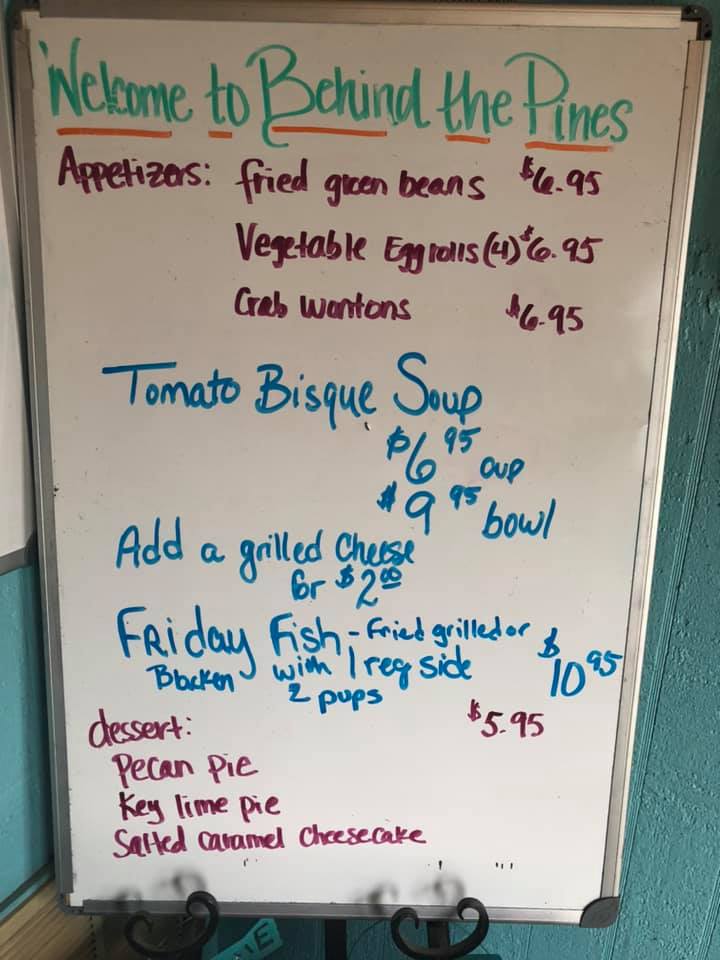 Welcome to Behind the Pines
Appetizers: fried green beans $6.95
Vegetable Egg rolls (4) $6.95
Crab wontons $6.95
Tomato Bisque Soup
$6 95 cup
$9 95 bowl
Add a grilled Cheese
for $2 00
FRiday Fish - Fried grilled or $10 95
Blacken with 1 reg side
2 pups
dessert: $5.95
Pecan pie
Key lime pie
Salted caramel cheesecake